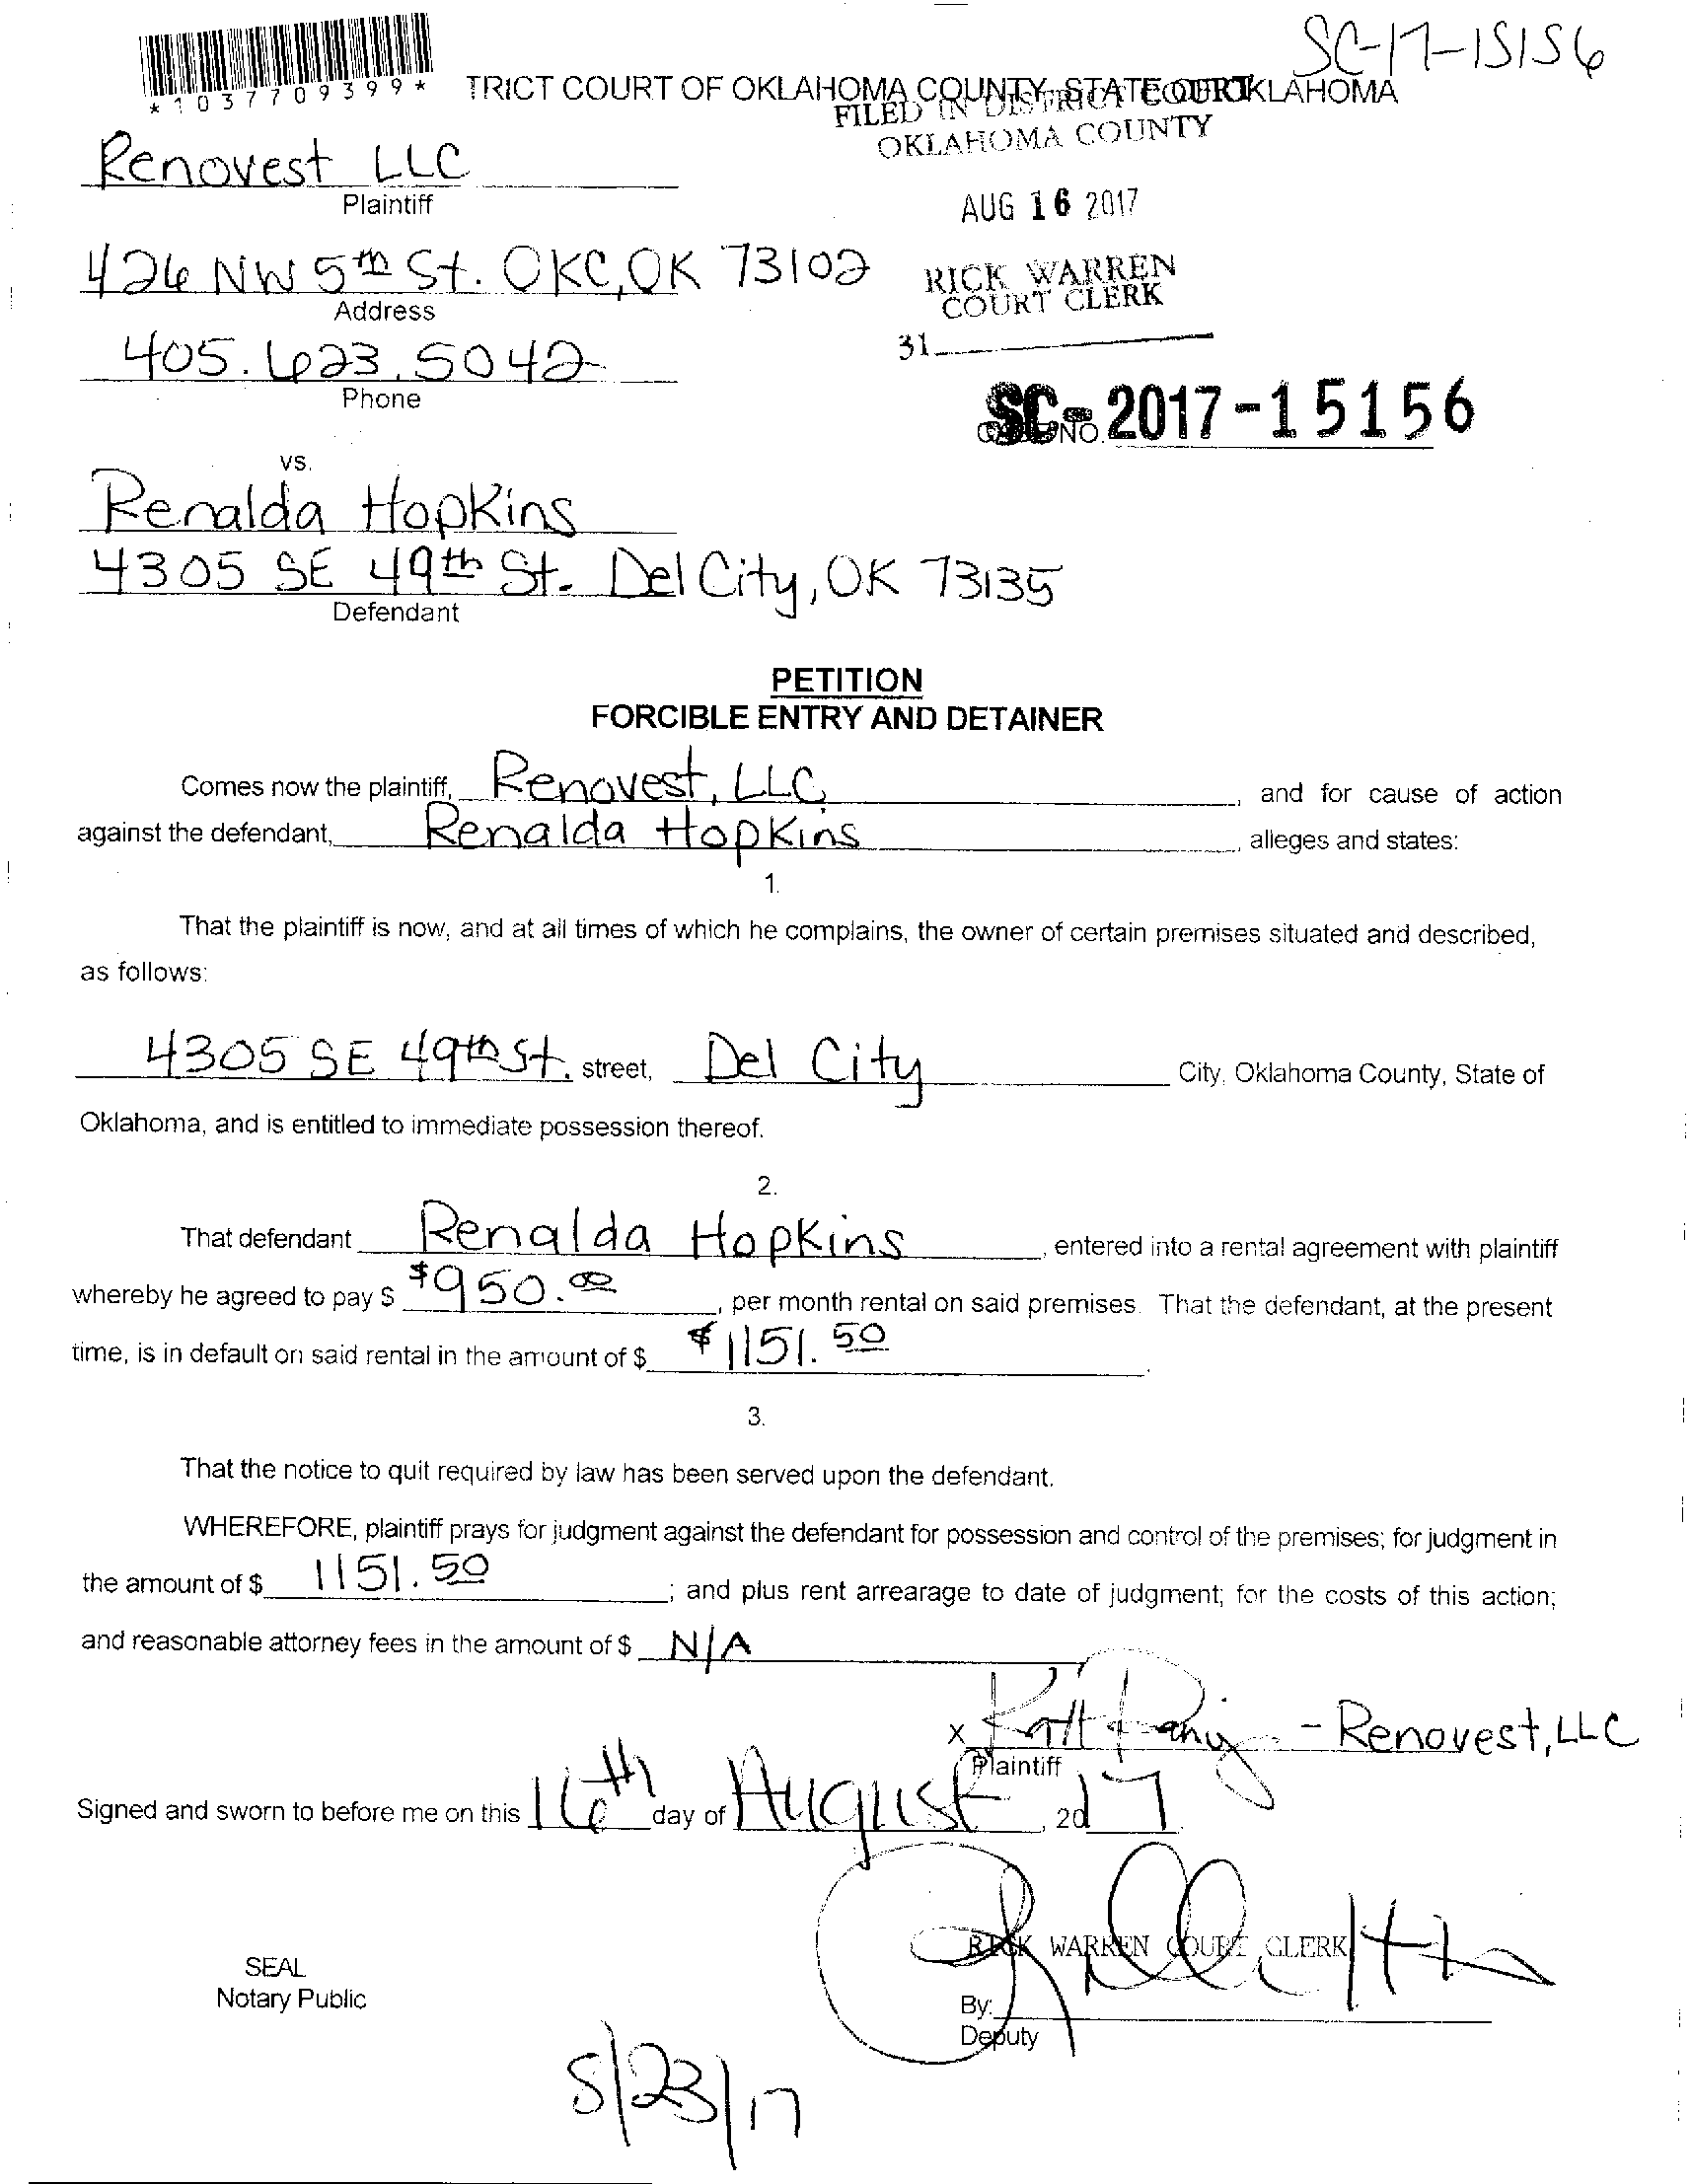 SC-17-15156
*1037709399*
TRICT COURT OF OKLAHOMA COUNTY, STATE OF OKLAHOMA
FILED IN DISTRICT COURT
OKLAHOMA COUNTY
Renovest LLC
Plaintiff
AUG 16 2017
426 NW 5th St. OKC, OK 73102
Address
RICK WARREN
COURT CLERK
31
405.623.5042
Phone
SC-2017-15156
NO.
vs.
Renalda Hopkins
4305 SE 49th St. Del City, OK 73135
Defendant
PETITION
FORCIBLE ENTRY AND DETAINER
Comes now the plaintiff, Renovest, LLC, and for cause of action
against the defendant, Renalda Hopkins, alleges and states:
1.
That the plaintiff is now, and at all times of which he complains, the owner of certain premises situated and described,
as follows:
4305 SE 49th St. street, Del City City, Oklahoma County, State of
Oklahoma, and is entitled to immediate possession thereof.
2.
That defendant Renalda Hopkins, entered into a rental agreement with plaintiff
whereby he agreed to pay $ $950.00, per month rental on said premises. That the defendant, at the present
time, is in default on said rental in the amount of $ $1151.50.
3.
That the notice to quit required by law has been served upon the defendant.
WHEREFORE, plaintiff prays for judgment against the defendant for possession and control of the premises; for judgment in
the amount of $ 1151.50; and plus rent arrearage to date of judgment; for the costs of this action;
and reasonable attorney fees in the amount of $ N/A
x - Renovest, LLC
Plaintiff
Signed and sworn to before me on this 16th day of August, 2017
RICK WARREN COURT CLERK
SEAL
Notary Public
By:
Deputy
8/23/17